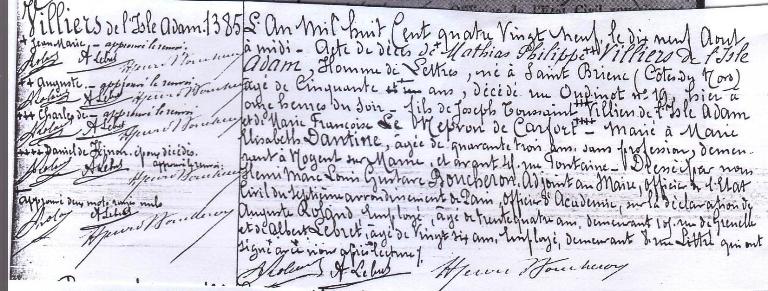 Villiers de l'Isle Adam. 1385
+ Jean Marie, - approuvé le renvoi.
A Lebret
++ Auguste - approuvé le renvoi
A Lebret
+++ Charles de - approuvé le renvoi
A Lebret
++++ Daniel de Kejean. époux décédé.
approuvé le renvoi.
approuvé deux mots rayés nuls
A Lebret
L'An Mil huit Cent quatre Vingt neuf, le dix neuf Août
à midi - Acte de décès de + Mathias Philippe ++ Villiers de l'Isle
Adam, Homme de Lettres, né à Saint Brieuc (Côtes du Nord)
âgé de Cinquante et un ans, décédé rue Oudinot n° 19, hier à
onze heures du soir - fils de Joseph Toussaint +++ Villiers de l'Isle Adam
et de Marie Françoise Le Nepvou de Carfort ++++ Marié à Marie
Elisabeth Dantine, âgée de quarante trois ans, sans profession, demeu-
rant à Nogent sur Marne, et avant 45, rue Fontaine - Dressé par nous
Henri Marc Louis Gustave Boucheron, Adjoint au Maire, officier de l'Etat
Civil du septième arrondissement de Paris, officier d'Académie, sur la déclaration de
Auguste Roland Employé, âgé de trente quatre ans, demeurant rue de Grenelle
et de Albert Lebret, âgé de vingt six ans, Employé, demeurant rue Littré qui ont
signé avec nous après lecture
A Lebret